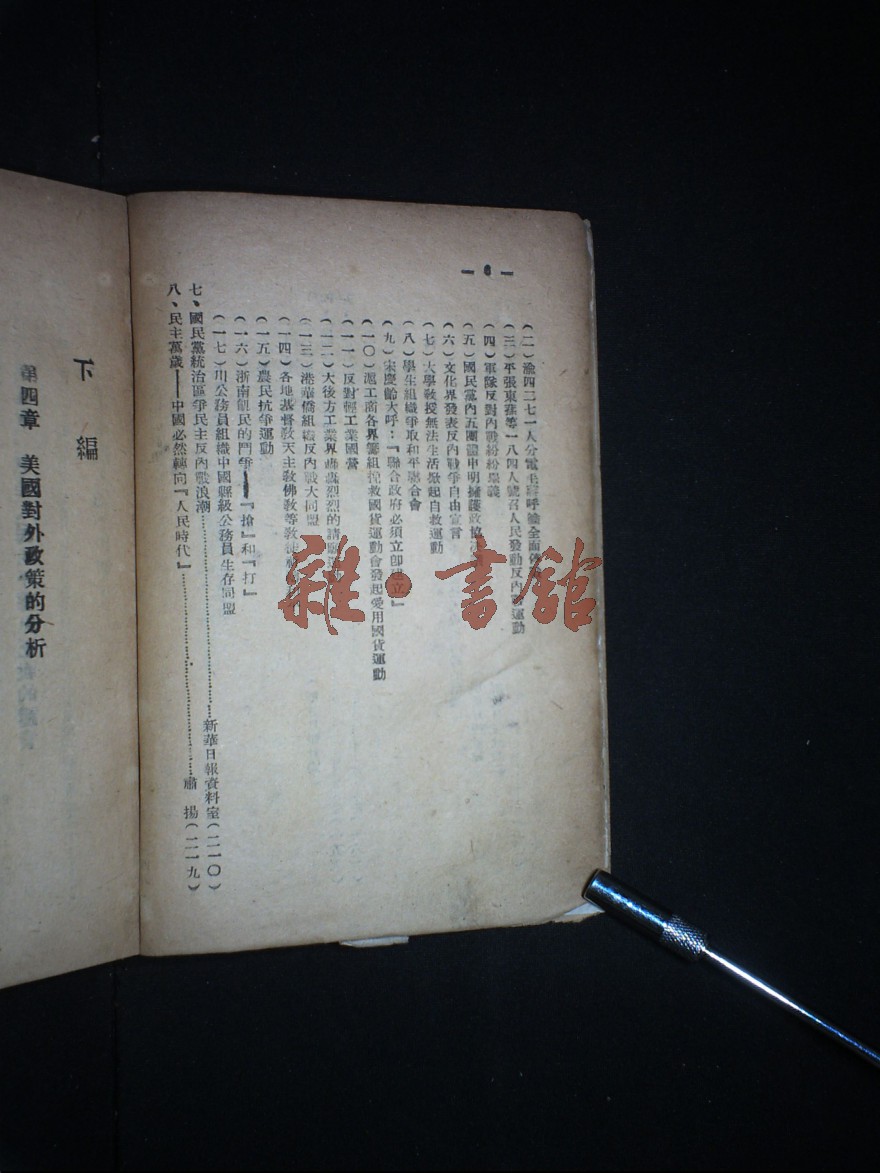 — 6 —
（二）渝四二七一人分電毛蔣呼籲全面
（三）平張東蓀等一八四人號召人民發動反內戰運動
（四）軍隊反對內戰紛紛起義
（五）國民黨內五團體申明擁護政協
（六）文化界發表反內戰爭自由宣言
（七）大學教授無法生活掀起自救運動
（八）學生組織爭取和平聯合會
（九）宋慶齡大呼：『聯合政府必須立卽建立』
（一〇）滬工商各界籌組挽救國貨運動會發起愛用國貨運動
（一一）反對輕工業國營
（一二）大後方工業界轟轟烈烈的請願運
（一三）港華僑組織反內戰大同盟
（一四）各地基督教天主教佛教等教徒
（一五）農民抗爭運動
（一六）浙南飢民的鬥爭——『搶』和『打』
（一七）川公務員組織中國縣級公務員生存同盟
七、國民黨統治區爭民主反內戰浪潮……新華日報資料室（二一〇）
八、民主萬歲——中國必然轉向『人民時代』……肅揚（二一九）
下編
第四章　美國對外政策的分析
雜·書館